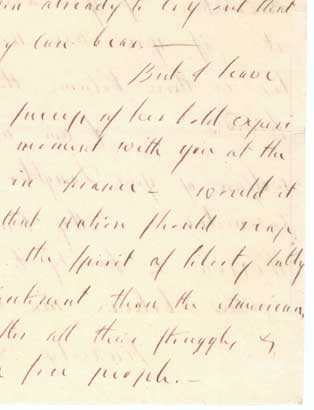 already to cry out that
can bear —
But I leave
of her bold experi
moment with you at the
in france — would it
that nation should reap
the spirit of liberty fully
than the American,
all their struggles, &
free people. —